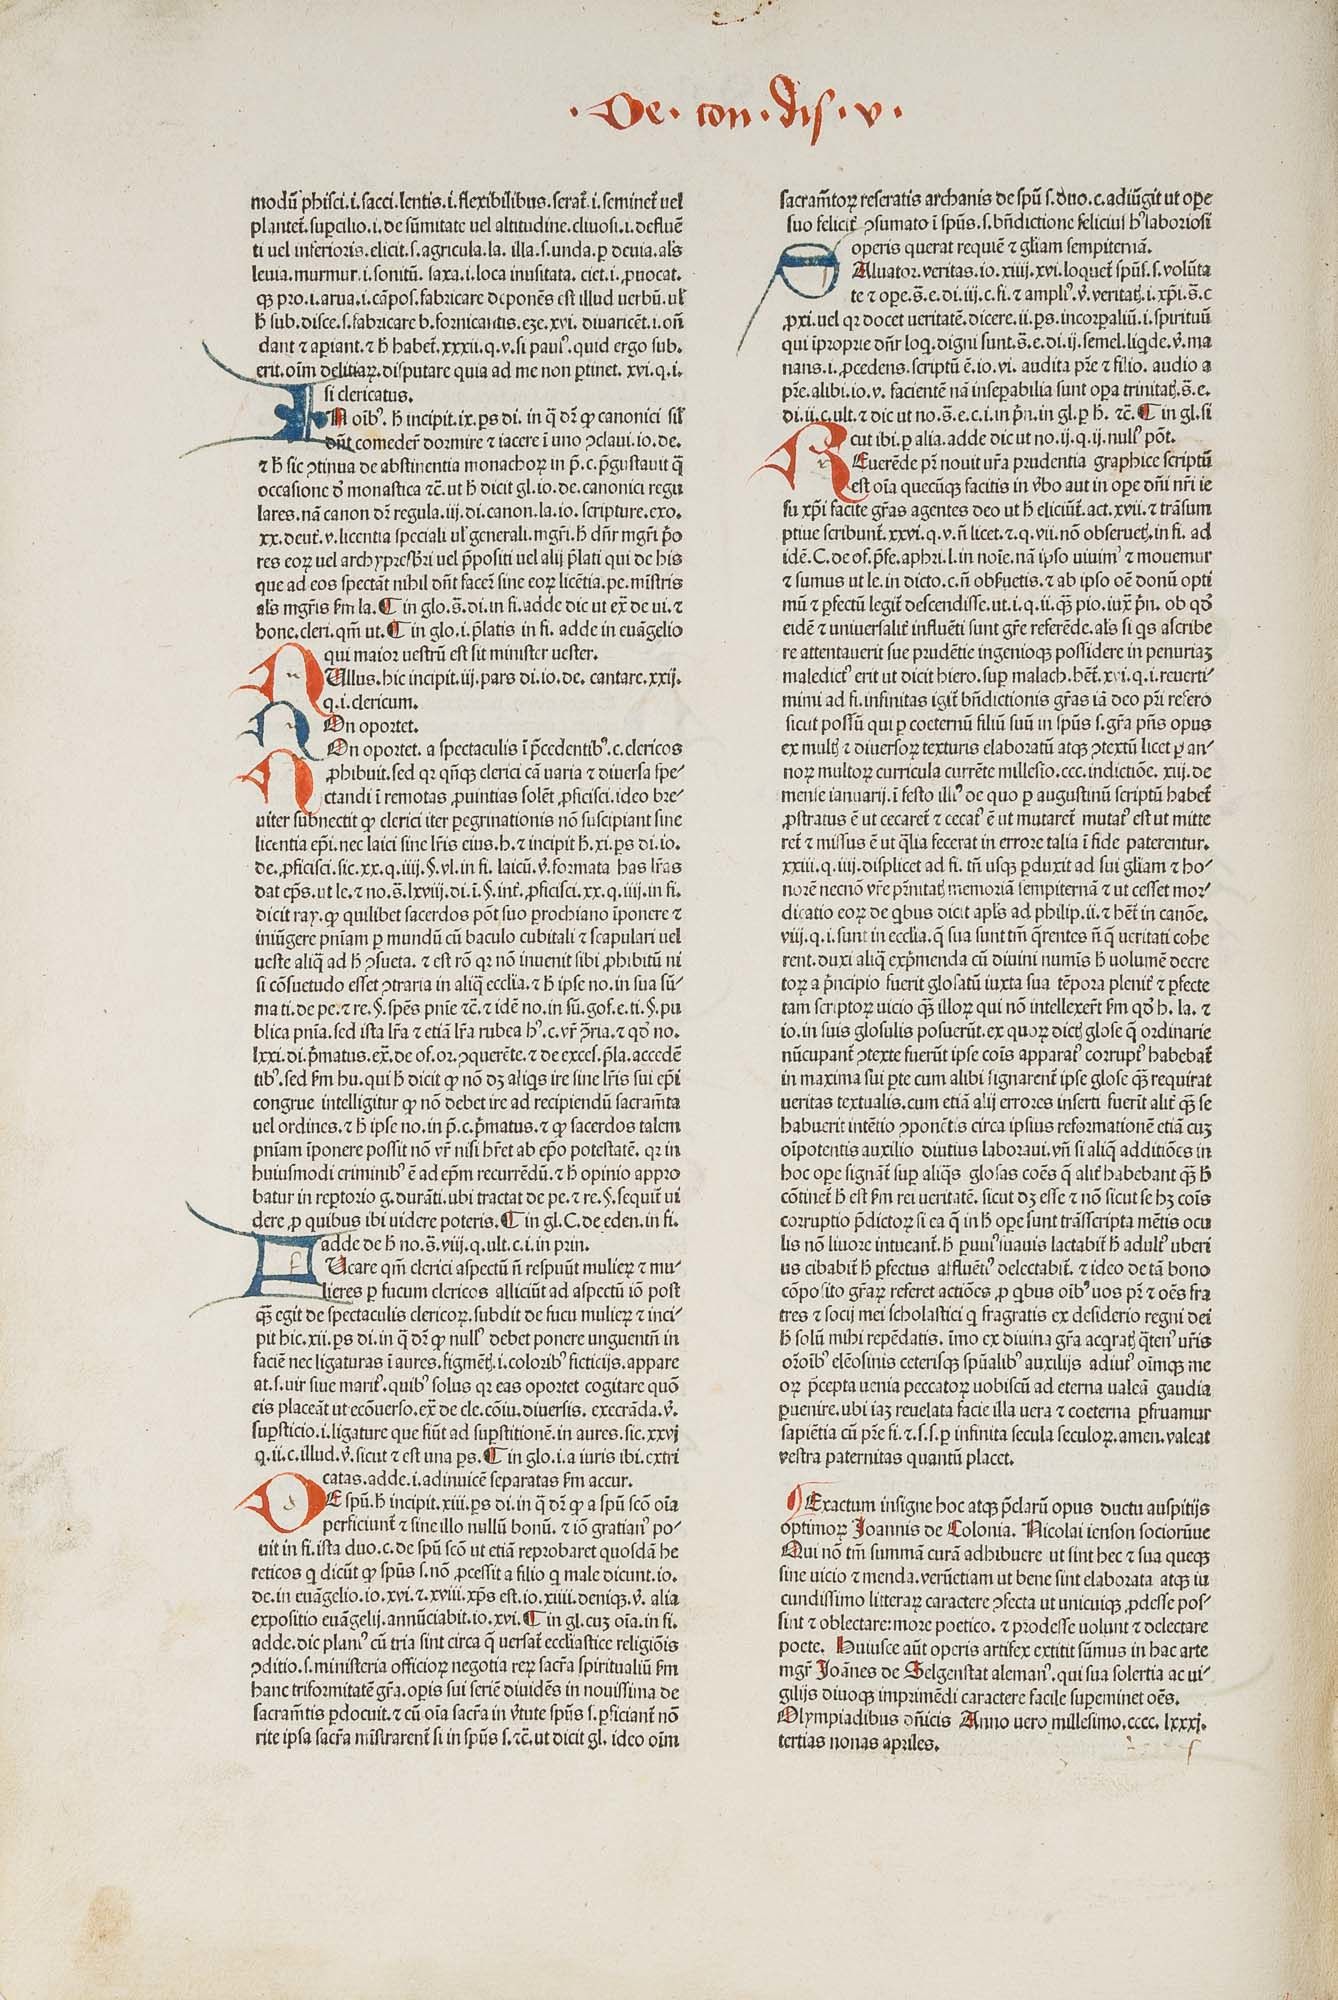 · De · con · dis · v ·
modū phisci.i.sacci.lentis.i.flexibilibus.serat᷑.i.seminet᷑ uel
plantet᷑.suꝑcilio.i.de sūmitate uel altitudine.cliuosi.i.defluē
ti uel inferioris.elicit.s.agricula.la. illa.s.unda.ꝑ deuia.als
leuia.murmur.i.sonitū. saxa.i.loca inusitata. ciet.i.ꝓuocat.
qꝫ pro.i.arua.i.cāpos.fabricare deponēs est illud uerbū.ul
ħ sub.disce.s.fabricare b.fornicantis.eze.xvi. diuaricēt.i.oñ
dant ⁊ aꝑiant.⁊ ħ habet᷑.xxxii.q.v.si paulꝰ.quid ergo sub.
erit.oīm delitiaꝝ.disputare quia ad me non ꝑtinet. xvi.q.i.
si clericatus.
N oībꝰ. ħ incipit.ix.ꝑs di. in q̄ dr̄ ꝙ canonici sil
dn̄t comedeř dormire ⁊ iacere ī uno ꝯclaui.io.de.
⁊ ħ sic ꝯtinua de abstinentia monachoꝝ in p̄.c.p̄gustauit q̄
occasione ꝺ monastica ⁊c̄.ut ħ dicit gl.io.de.canonici regu
lares.nā canon dr̄ regula.iij.di.canon.la.io.scripture.exo.
xx.deut᷑.v.licentia speciali ul generali.mgr̄i.ħ dn̄r mgr̄i p̄o
res eoꝝ uel archypresbr̄i uel p̄positi uel alij p̄lati qui de his
que ad eos spectāt nihil dn̄t faceř sine eoꝝ licētia.pe.mīstris
als mgr̄is ẜm la.¶ in glo.s̄.di.in fi.adde dic ut ex̄.de ui.⁊
bone.cleri.qm̄ ut.¶ in glo.i.p̄latis in fi. adde in euāgelio
qui maior uestrū est sit minister uester.
Ullus.hic incipit.iij.pars di.io.de. cantare.xxij.
q.i.clericum.
On oportet.
On oportet. a spectaculis ī p̄cedentibꝰ.c.clericos
ꝓhibuit.sed qꝛ qn̄qꝫ clerici cā uaria ⁊ diuersa spe⸗
ctandi ī remotas ꝓuintias solēt ꝓficisci.ideo bre⸗
uiter subnectit ꝙ clerici iter ꝑegrinationis nō suscipiant sine
licentia ep̄i.nec laici sine lr̄is eius.ħ.⁊ incipit ħ.xi.ꝑs di.io.
de.ꝓficisci.sic.xx.q.iiij.§.vl.in fi. laicū.ꝟ.formata has lr̄as
dat ep̄s.ut le.⁊ no.s̄.lxviii.di.ī.§.int᷑.ꝓficisci.xx.q.iiij.in fi.
dicit ray. ꝙ quilibet sacerdos pōt suo ꝑrochiano īponere ⁊
iniūgere pn̄iam ꝑ mundū cū baculo cubitali ⁊ scapulari uel
ueste aliq̄ ad ħ ꝯsueta. ⁊ est rō qꝛ non inuenit sibi ꝓhibitū ni
si cōsuetudo esset ꝯtraria in aliq̄ eccl̄ia.⁊ ħ ipse no.in sua sū⸗
ma ti.de pe.⁊ re.§.spēs pnīe ⁊c̄.⁊ idē no.in sū.gof.e.ti.§.pu
blica pnīa.sed ista lr̄a ⁊ etiā lr̄a rubea hꝰ.c.vr̄ ꝯr̄ia.⁊ qꝺ no.
lxxi.di.p̄matus.ex̄.de of.or.ꝯquerēte.⁊ de exces.p̄la.accedē
tibꝰ.sed ẜm hu.qui ħ dicit ꝙ nō dꝫ aliq̄s ire sine lr̄is sui ep̄i
congrue intelligitur ꝙ nō debet ire ad recipiendū sacram̄ta
uel ordines.⁊ ħ ipse no.in p̄.c.p̄matus.⁊ ꝙ sacerdos talem
pnīam īponere possit nō vr̄ nisi hr̄et ab ep̄o potestatē. qꝛ in
huiusmodi criminibꝰ ē ad ep̄m recurrēdū.⁊ ħ opinio appro
batur in reꝑtorio g.durāti.ubi tractat de pe.⁊ re.§.sequit᷑ ui
dere ꝓ quibus ibi uidere poteris.¶ in gl.C.de eden.in fi.
adde de ħ no.s̄.viij.q.ult.c.i.in prin.
Ucare qm̄ clerici aspectū n̄ respuūt mulieꝝ ⁊ mu⸗
lieres ꝑ fucum clericos alliciūt ad aspectū iō post
qꝫ egit de spectaculis clericoꝝ.subdit de fucu mulieꝝ ⁊ inci⸗
pit hic.xii.ꝑs di.in q̄ dr̄ ꝙ nullꝰ debet ponere unguentū in
faciē nec ligaturas ī aures.figmētꝭ.i.coloribꝰ ficticijs.appare
at.s.uir siue maritꝰ.quibꝰ solus qꝛ eas oportet cogitare quō
eis placeāt ut ecōuerso.ex̄.de cle.cōiu.diuersis. execrāda.ꝟ.
suꝑsticio.i.ligature que fiūt ad suꝑstitionē.in aures.sic.xxvj
q.ii.c.illud.ꝟ.sicut ⁊ est una ꝑs.¶ in glo.i.a iuris ibi.extri
catas.adde.i.adinuicē separatas ẜm accur.
E spū.ħ incipit.xiii.ꝑs di.in q̄ dr̄ ꝙ a spū scō oīa
ꝑficiunt᷑ ⁊ sine illo nullū bonū.⁊ iō gratianꝰ po⸗
uit in fi.ista duo.c.de spū scō ut etiā reprobaret quosdā he
reticos q̄ dicūt ꝙ spūs s.nō ꝓcessit a filio q̄ male dicunt.io.
de.in euāgelio.io.xvi.⁊.xviii.xp̄s est.io.xiiii.deniqꝫ.ꝟ. alia
expositio euāgelij.annūciabit.io.xvi.¶ in gl.cuꝫ oīa.in fi.
adde.dic planiꝰ cū tria sint circa q̄ uersat᷑ eccl̄iastice religiōis
ꝯditio.s.ministeria officioꝝ negotia reꝝ sacr̄a spiritualiū ẜm
hanc triformitatē gr̄a.oꝑis sui seriē diuidēs in nouissima de
sacram̄tis ꝑdocuit.⁊ cū oīa sacr̄a in ꝟtute spūs s.ꝑficiant᷑ nō
rite ipsa sacr̄a mīstrarent᷑ si in spūs s.⁊c̄.ut dicit gl. ideo oīm
sacram̄toꝝ reseratis archanis de spū s.duo.c.adiūgit ut oꝑe
suo felicit᷑ ꝯsumato ī spūs.s.bn̄dictione feliciꝰ ħ laboriosi
operis querat requiē ⁊ gl̄iam sempiternā.
Aluator.veritas.io.xiiij.xvi.loquet᷑ spūs.s.volūta
te ⁊ oꝑe.s̄.e.di.iij.c.fi.⁊ ampliꝰ.ꝟ.veritatꝭ.i.xp̄i.s̄.c
ꝓxi.uel qꝛ docet ueritatē.dicere.ii.ꝑs.incorꝑaliū.i.spirituū
qui īproprie dn̄r loq̄.digni sunt.s̄.e.di.ij.semel.liqde.ꝟ.ma
nans.i.ꝓcedens.scriptū ē.io.vi. audita pr̄e ⁊ filio. audio a
pr̄e.alibi.io.v. facientē nā inseꝑabilia sunt oꝑa trinitatꝭ.s̄.e.
di.ii.c.ult.⁊ dic ut no.s̄.e.c.i.in p̄n.in gl.ꝑ ħ. ⁊c̄.¶ in gl.si
cut ibi.ꝑ alia.adde dic ut no.ij.q.ij.nullꝰ pōt.
Euerēde pr̄ nouit ur̄a prudentia graphice scriptū
est oīa quecūqꝫ facitis in ꝟbo aut in oꝑe dn̄i nr̄i ie
su xp̄i facite gr̄as agentes deo ut ħ eliciūt᷑.act.xvii.⁊ trāsum
ptiue scribunt᷑.xxvi.q.v.n̄ licet.⁊.q.vii.nō obseruetꝭ.in fi. ad
idē.C.de of.p̄fe.aphri.l.in noīe.nā in ipso uiuimꝰ ⁊ mouemur
⁊ sumus ut le.in dicto.c.n̄ obs̄uetis.⁊ ab ipso oē donū opti
mū ⁊ ꝑfectū legit᷑ descendisse.ut.i.q.ii.qꝫ pio.iux̄ p̄n. ob qꝺ
eidē ⁊ uniuersalit᷑ influēti sunt gr̄e referēde.als si qs ascribe
re attentauerit sue prudētie ingenioqꝫ possidere in penuriaꝫ
maledictꝰ erit ut dicit hiero.suꝑ malach.het᷑.xvi.q.i.reuerti⸗
mini ad fi.infinitas igit᷑ bn̄dictionis gr̄as iā deo pr̄i refero
sicut possū qui ꝑ coeternū filiū suū in spūs s.gr̄a pn̄s opus
ex multꝭ ⁊ diuersoꝝ texturis elaboratū atqꝫ ꝯtextū licet ꝑ an⸗
noꝝ multoꝝ curricula currēte millesio.ccc.indictiōe. xiij.de
mense ianuarij.ī festo illiꝰ de quo ꝑ augustinū scriptū habet᷑
ꝓstratus ē ut cecaret᷑ ⁊ cecatꝰ ē ut mutaret᷑ mutatꝰ est ut mitte
ret᷑ ⁊ missus ē ut q̄lia fecerat in errore talia ī fide paterentur.
xxiii.q.iiij.displicet ad fi.tn̄ usqꝫ ꝑduxit ad sui gl̄iam ⁊ ho⸗
norē necnō vr̄e pr̄nitatꝭ memoriā sempiternā ⁊ ut cesset mor⸗
dicatio eoꝝ de qbus dicit apl̄s ad philip.ii.⁊ het᷑ in canōe.
viij.q.i.sunt in eccl̄ia.q̄ sua sunt tm̄ q̄rentes n̄ q̄ ueritati cohe
rent.duxi aliq̄ exp̄menda cū diuini numīs ħ volumē decre
toꝝ a p̄ncipio fuerit glosatū iuxta sua tēpora plenit᷑ ⁊ ꝑfecte
tam scriptoꝝ uicio qꝫ illoꝝ qui nō intellexeřt ẜm qꝺ h. la. ⁊
io.in suis glosulis posuerūt.ex quoꝝ dictꝭ glose q̄ ordinarie
nūcupant᷑ ꝯtexte fuerūt ipse coīs apparatꝰ corruptꝰ habebat᷑
in maxima sui ꝑte cum alibi signarent᷑ ipse glose qꝫ requirat
ueritas textualis.cum etiā alij errores inserti fuerīt alit᷑ qꝫ se
habuerit intētio ꝯponētis circa ipsius reformationē etiā cuꝫ
oīpotentis auxilio diutius laboraui.vn̄ si aliq̄ additiōes in
hoc oꝑe signāt᷑ suꝑ aliq̄s glosas coēs q̄ alit᷑ habebant qꝫ ħ
cōtinet᷑ ħ est ẜm rei ueritatē. sicut dꝫ esse ⁊ nō sicut se hꝫ coīs
corruptio p̄dictoꝝ si ea q̄ in ħ oꝑe sunt trāscripta mētis ocu
lis nō liuore intueant᷑.ħ puulꝰ suauis lactabit᷑ ħ adultꝰ uberi
us cibabit᷑ ħ ꝑfectus affluētiꝰ delectabit᷑. ⁊ ideo de tā bono
cōposito gr̄aꝝ referet actiōes ꝓ qbus oībꝰ uos pr̄ ⁊ oēs fra
tres ⁊ socij mei scholastici q̄ fragratis ex desiderio regni dei
ħ solū mihi repēdatis. īmo ex diuina gr̄a acq̄ratꝭ q̄tenꝰ ur̄is
or̄oībꝰ elēosinis ceterisqꝫ spūalibꝰ auxilijs adiutꝰ oīmqꝫ me
oꝝ p̄cepta uenia peccatoꝝ uobiscū ad eterna ualeā gaudia
ꝑuenire.ubi iaꝫ reuelata facie illa uera ⁊ coeterna ꝑfruamur
sapiētia cū pr̄e fi.⁊.s.s.ꝑ infinita secula seculoꝝ.amen.valeat
vestra paternitas quantū placet.
Exactum insigne hoc atqꝫ p̄clarū opus ductu auspitijs
optimoꝝ Joannis de Colonia. Nicolai ienson sociorūue
Qui nō tm̄ summā curā adhibuere ut sint hec ⁊ sua queqꝫ
sine uicio ⁊ menda.verūetiam ut bene sint elaborata atqꝫ iu
cundissimo litteraꝝ caractere ꝯfecta ut unicuiqꝫ ꝓdesse pos⸗
sint ⁊ oblectare:more poetico.⁊ prodesse uolunt ⁊ delectare
poete. Huiusce aūt operis artifex extitit sūmus in hac arte
mgr̄ Joānes de Selgenstat alemanꝰ.qui sua solertia ac ui⸗
gilijs diuoqꝫ imprimēdi caractere facile suꝑeminet oēs.
Olympiadibus dn̄icis Anno uero millesimo.cccc. lxxxj.
tertias nonas apriles.